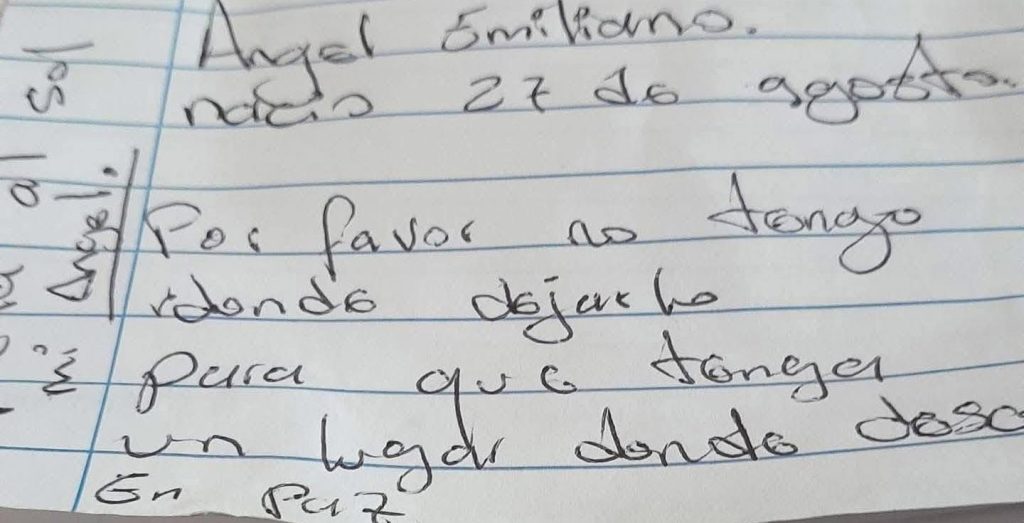 Angel Emiliano.
nació 27 de agosto.
Por favor no tengo
donde dejarlo
para que tenga
un lugar donde desc
En Paz